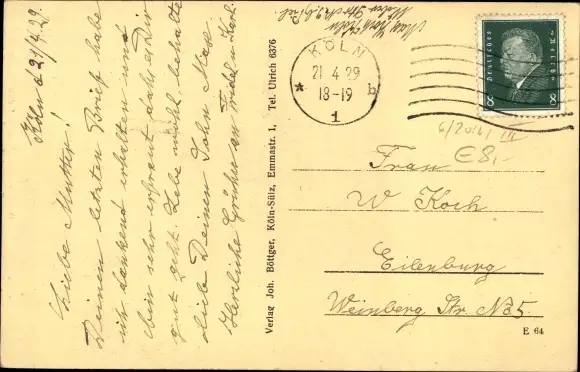 Köln d 21/4. 29.
Liebe Mutter!
Deinen letzten Brief habe
ich dankend erhalten und
bin sehr erfreut daß es Dir
gut geht. Lebe wohl, behalte
lieb Deinen Sohn Max
Herzliche Grüße an Friedel u. Karl.
Verlag Joh. Böttger, Köln-Sülz, Emmastr. 1, Tel. Ulrich 6376
Max Koch Köln
KÖLN
21 4 29
18-19
* b
1
Deutsches Reich
8 8
6/2016/
€8,-
Frau
W Koch
Eilenburg
Weinberg Str. No 5.
E 64